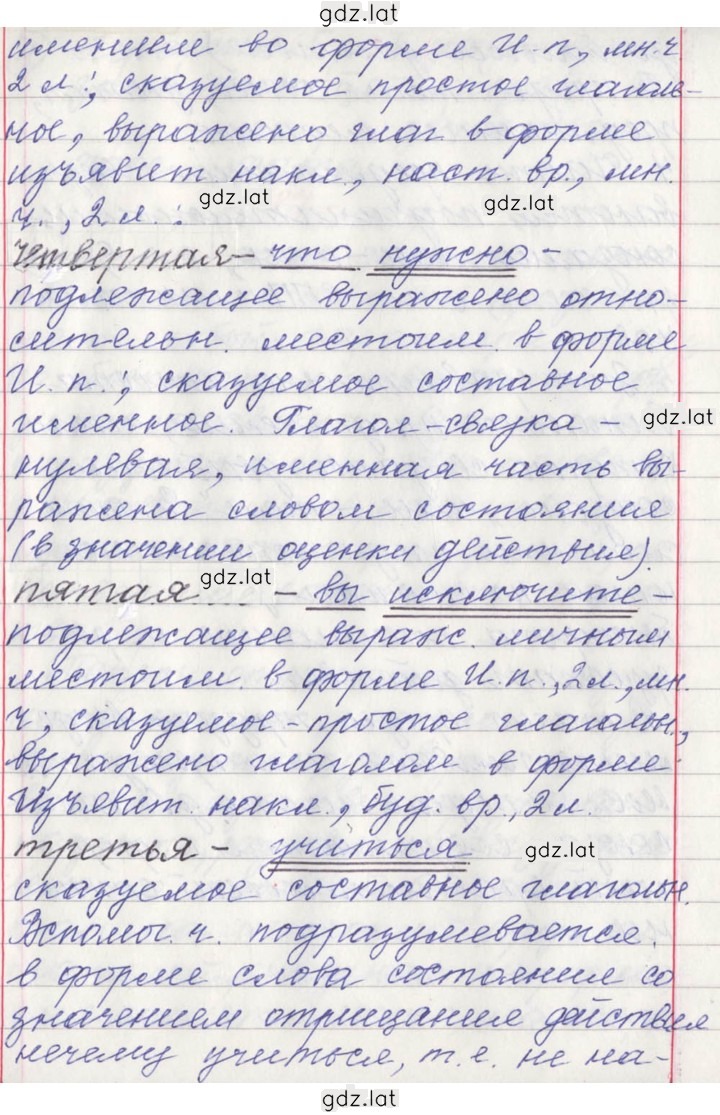 gdz.lat
имением во форме И.п, мн.ч.
2 л., сказуемое простое глаголь-
ное, выражено глаг. в форме
изъявит. накл., наст. вр., мн.
gdz.lat
ч., 2 л. :
четвертая - что нужно -
подлежащее выражено отно-
сительн. местоим. в форме
И.п., сказуемое составное
именное. Глагол-связка -
gdz.lat
нулевая, именная часть вы-
ражена словом состояния
(в значении оценки действия).
gdz.lat
пятая - вы исключите -
подлежащее выраж. личным
местоим. в форме И.п., 2 л., мн.
ч., сказуемое - простое глагольн.,
выражено глаголом в форме
изъявит. накл., буд. вр., 2 л.
третья - учиться
gdz.lat
сказуемое составное глагольн.
Вспомог. ч. подразумевается.
в форме слова состояния со
значением отрицания действия
нечему учиться, т.е. не на-
gdz.lat